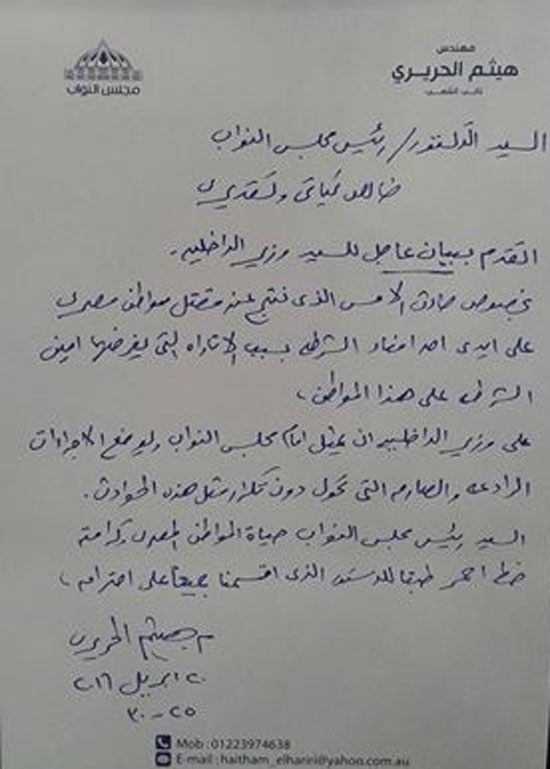 مجلس النواب
مهندس
هيثم الحريري
نائب الشعب
السيد الدكتور/ رئيس مجلس النواب
خالص تحياتي وتقديري
اتقدم ببيان عاجل للسيد وزير الداخلية.
بخصوص حادث الامس الذى نتج عنه مقتل مواطن مصرى
على ايدى احد امناء الشرطه بسبب الاتاوه التى يفرضها امين
الشرطه على هذا المواطن،
على وزير الداخلية ان يمثل امام مجلس النواب ويوضح الاجراءات
الرادعه والصارمه التى تحول دون تكرار مثل هذه الحوادث.
السيد رئيس مجلس النواب حياة المواطن المصرى وكرامته
خط احمر طبقا للدستور الذى اقسمنا جميعا على احترامه،
م هيثم الحريرى
٢٠ ابريل ٢٠١٦
Mob : 01223974638
E-mail : haitham_elhariri@yahoo.com.au